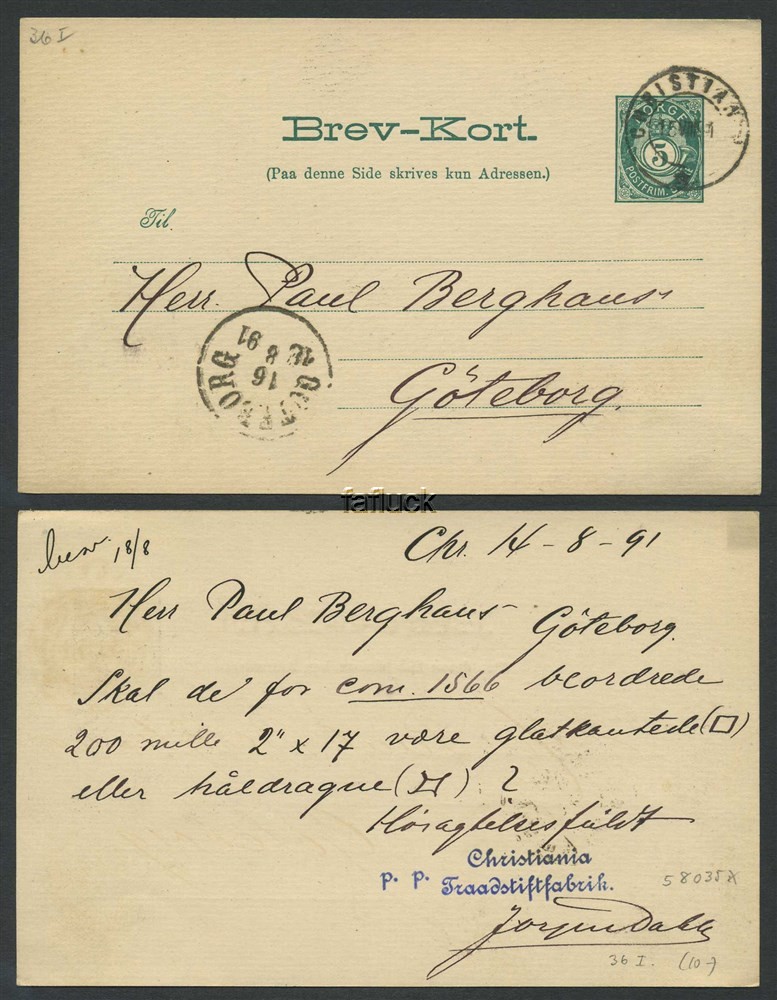 36 I
Brev-Kort.
(Paa denne Side skrives kun Adressen.)
NORGE
5
POSTFRIM.
CHRISTIANIA
Til
Herr Paul Berghaus
Göteborg.
GÖTEBORG
16
8
91
fafluck
besv. 18/8
Chr. 14 - 8 - 91
Herr Paul Berghaus
Göteborg.
Skal de for com. 1566 beordrede
200 mille 2" x 17 være glatkantede (□)
eller håldragne ( ) ?
Høiagtelsesfuldt
Christiania
p. p. Traadstiftfabrik.
58035X
Jørgen Dahl
36 I. (10-)